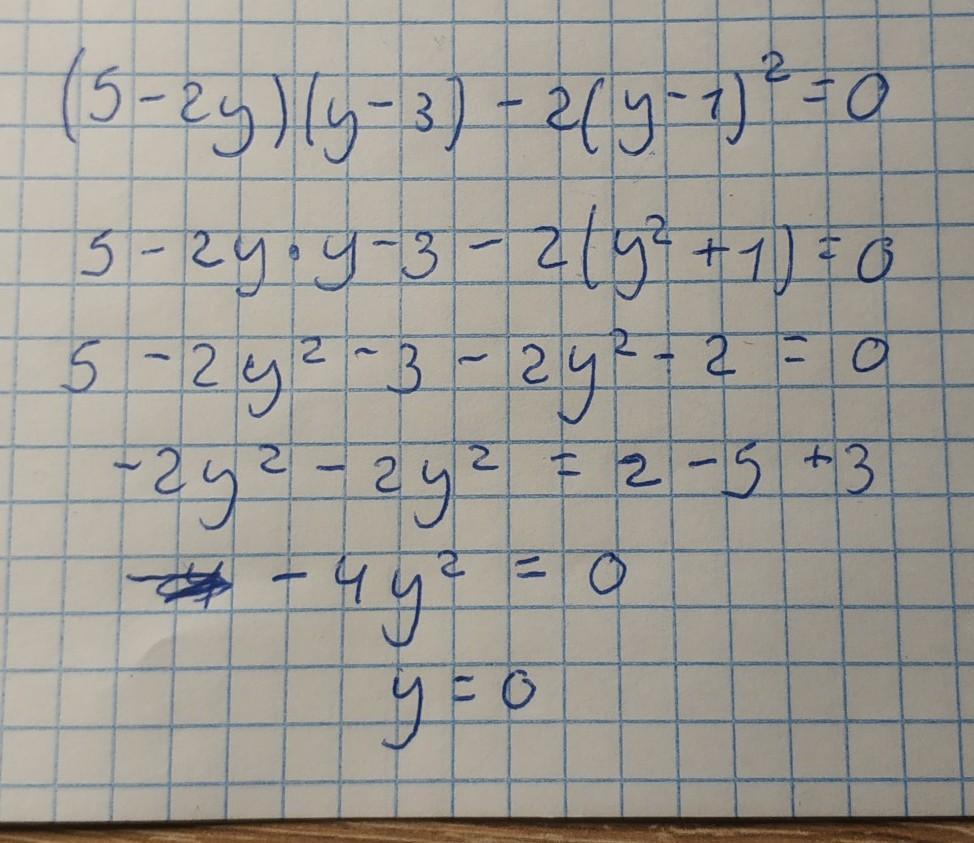 (5-2y)(y-3) - 2(y-1)² = 0
5 - 2y · y - 3 - 2(y² + 1) = 0
5 - 2y² - 3 - 2y² - 2 = 0
-2y² - 2y² = 2 - 5 + 3
-4y² = 0
y = 0